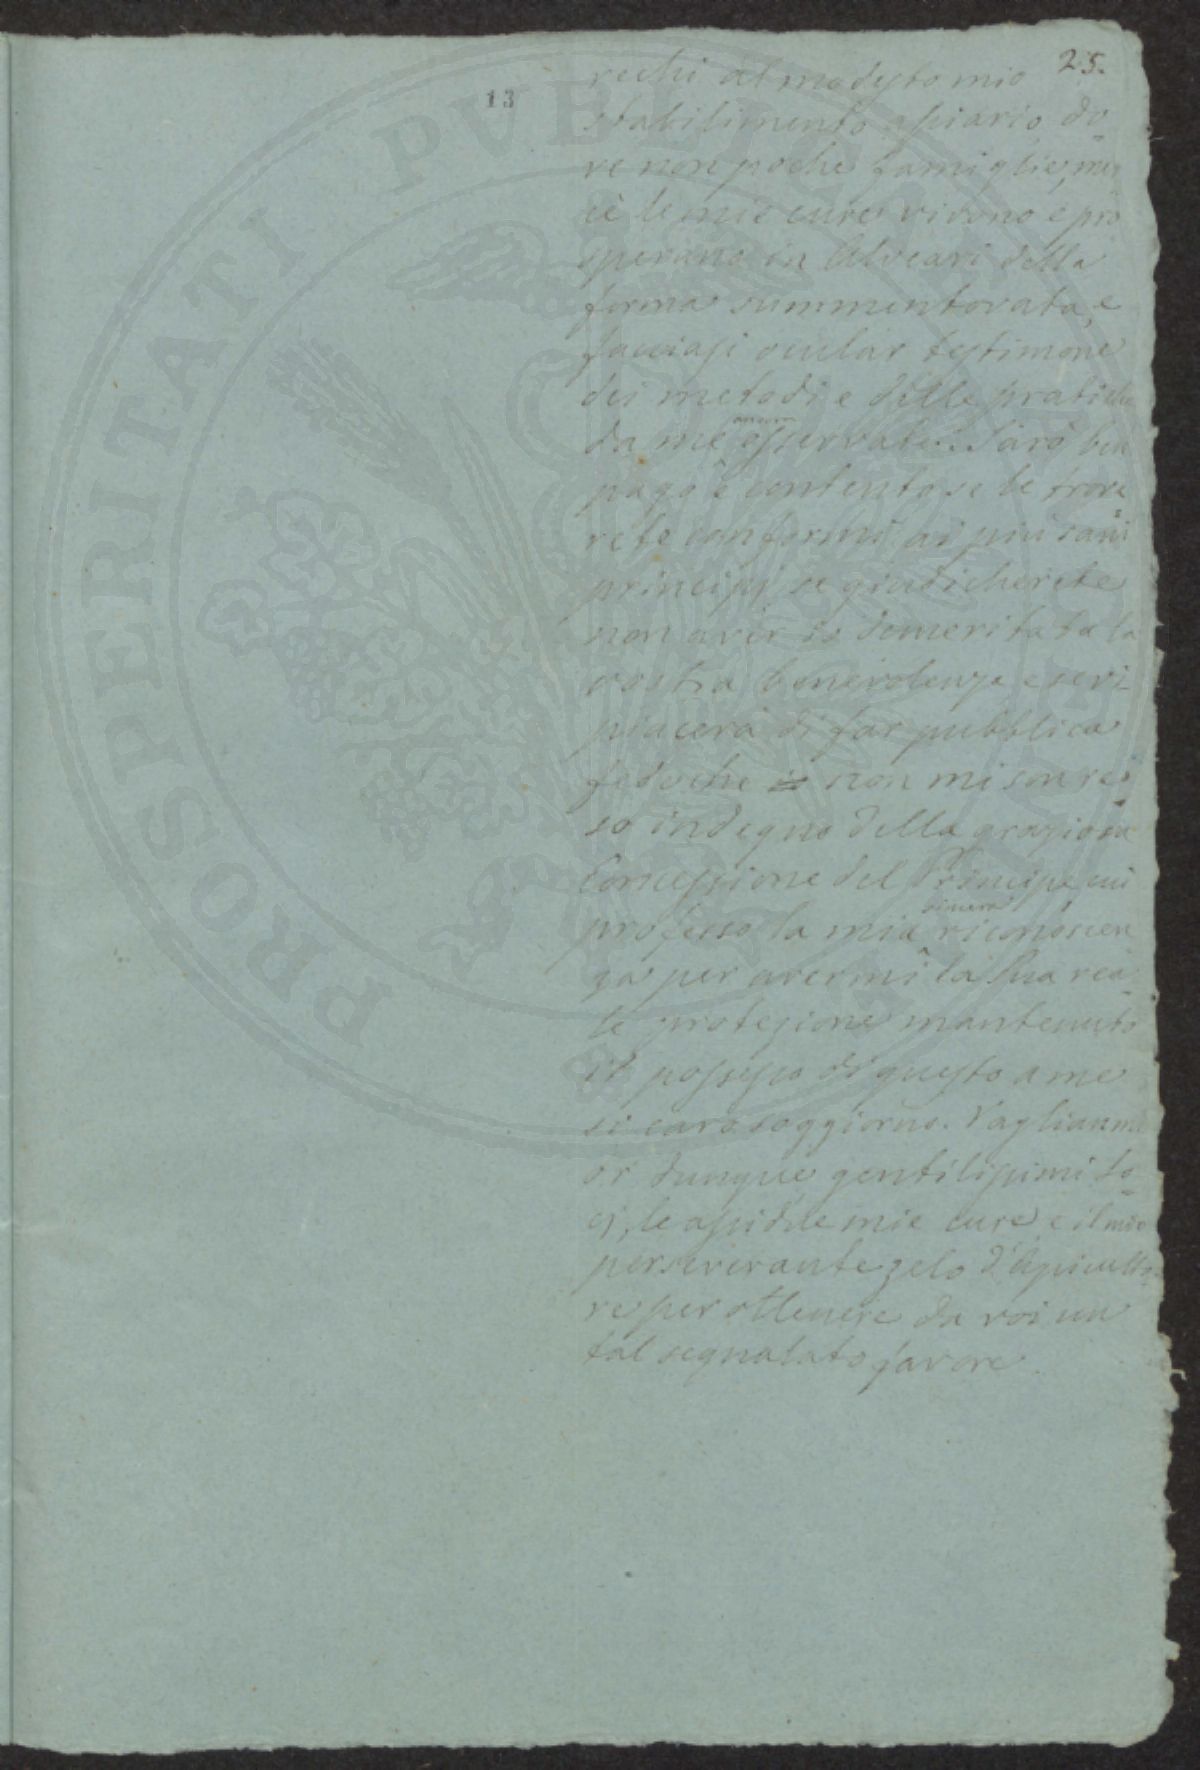 25.
13
rechi al modesto mio
stabilimento apiario do-
ve non poche famiglie, mer
cè le mie cure vivono e pro
sperano in Alveari della
forma summentovata, e
facciasi ocular testimone
dei metodi e delle pratiche
ancora
da me osservate. Sarò ben
pago e contento se le trove
rete conformi ai più sani
principj se giudicherete
non aver io demeritata la
vostra benevolenza e se vi
piacerà di far pubblica
fede che io non mi son re
so indegno della graziosa
Concessione del Principe cui
sincera
professo la mia riconoscen
za per avermi la Sua rea-
le protezione mantenuto
il possesso di questo a me
sì caro soggiorno. Vaglianmi
or dunque gentilissimi So-
cj, le assidue mie cure, e il mio
perseverante zelo d'Apiculto-
re per ottenere da voi un
tal segnalato favore
PROSPERITATI PVBLICAE